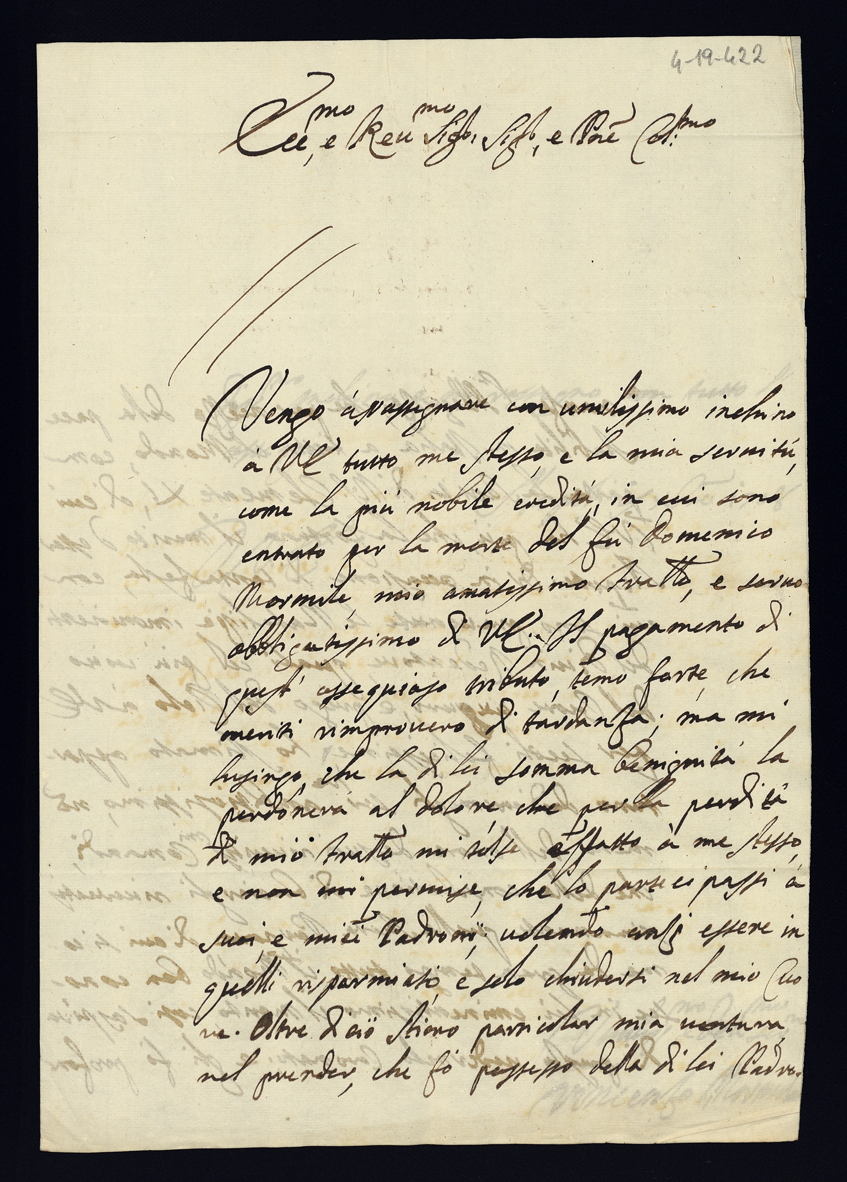 4-19-422
Ecc.mo, e Reu.mo Sig.r, Sig.r, e Pñe Col.mo
Vengo à rassegnare con umilissimo inchino
à VE tutto me stesso, e la mia seruitù,
come la più nobile eredità, in cui sono
entrato per la morte del fù Domenico
Mormile, mio amatissimo fratello, e seruo
obbligatissimo di VE. Il pagamento di
quest' ossequioso tributo, temo forte, che
meriti rimprouero di tardanza; ma mi
lusingo, che la di lei somma benignità la
perdonerà al dolore, che per la perdita
di mio fratello mi tolse affatto à me stesso,
e non mi permise, che lo partecipassi à
suoi, e miei Padroni; uolendo anzi essere in
quelli risparmiato, e solo chiudersi nel mio Cuo
re. Oltre di ciò stimo particolar mia uentura
nel prender, che fò possesso della di lei Padro-